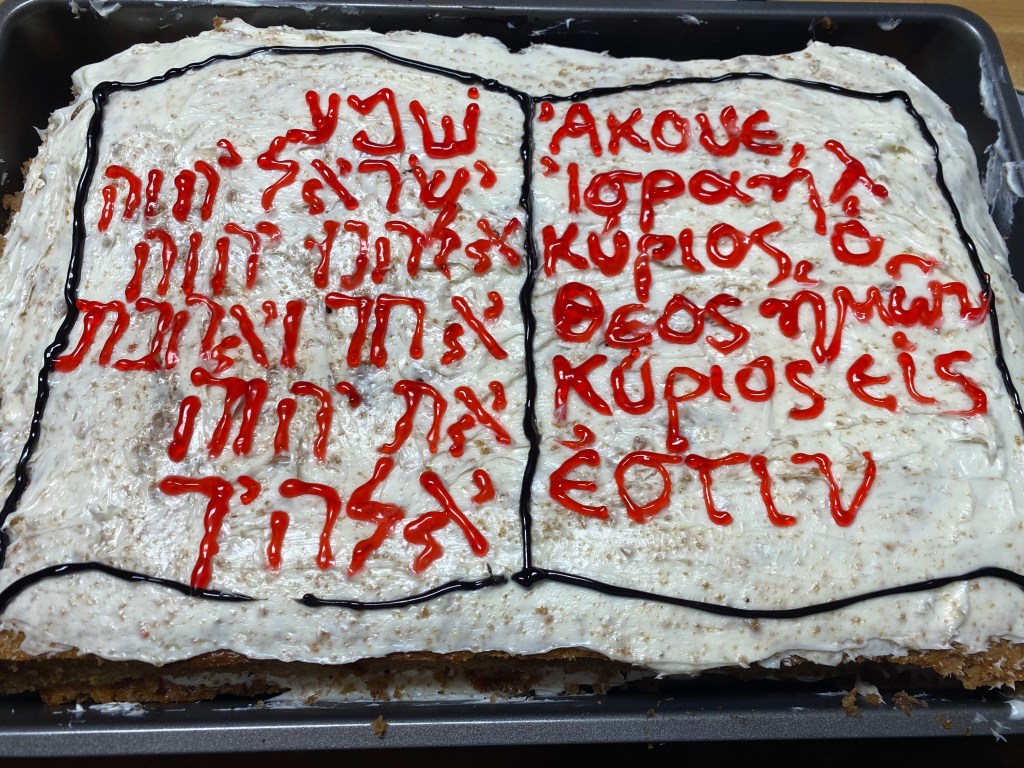 שׁמע
ישראל יהוה
אלהינו יהוה
אחד ואהבת
את יהוה
אלהיך
Ἀκουε
Ἰσραήλ
κύριος, ὁ
θεος ημῶν
κύριος εἰς
ἐστιν